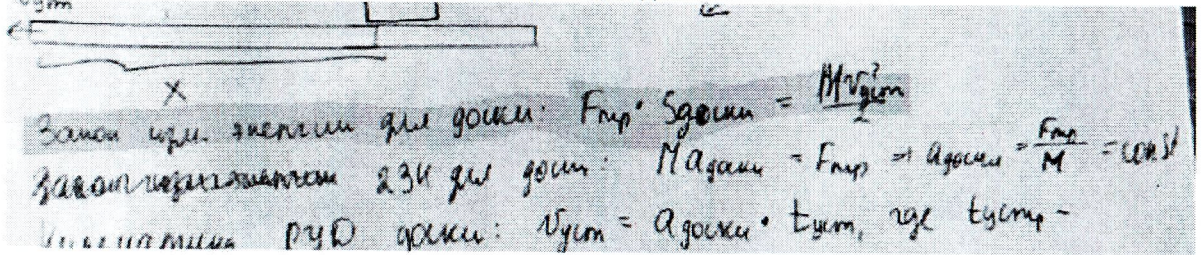 vуст
x
Закон изм. энергии для доски: Fтр · Sдоски = Mv²уст / 2
2ЗН для доски: Maдоски = Fтр ⇒ aдоски = Fтр / M = const
Кинематика РУД доски: vуст = aдоски · tуст, где tуст -